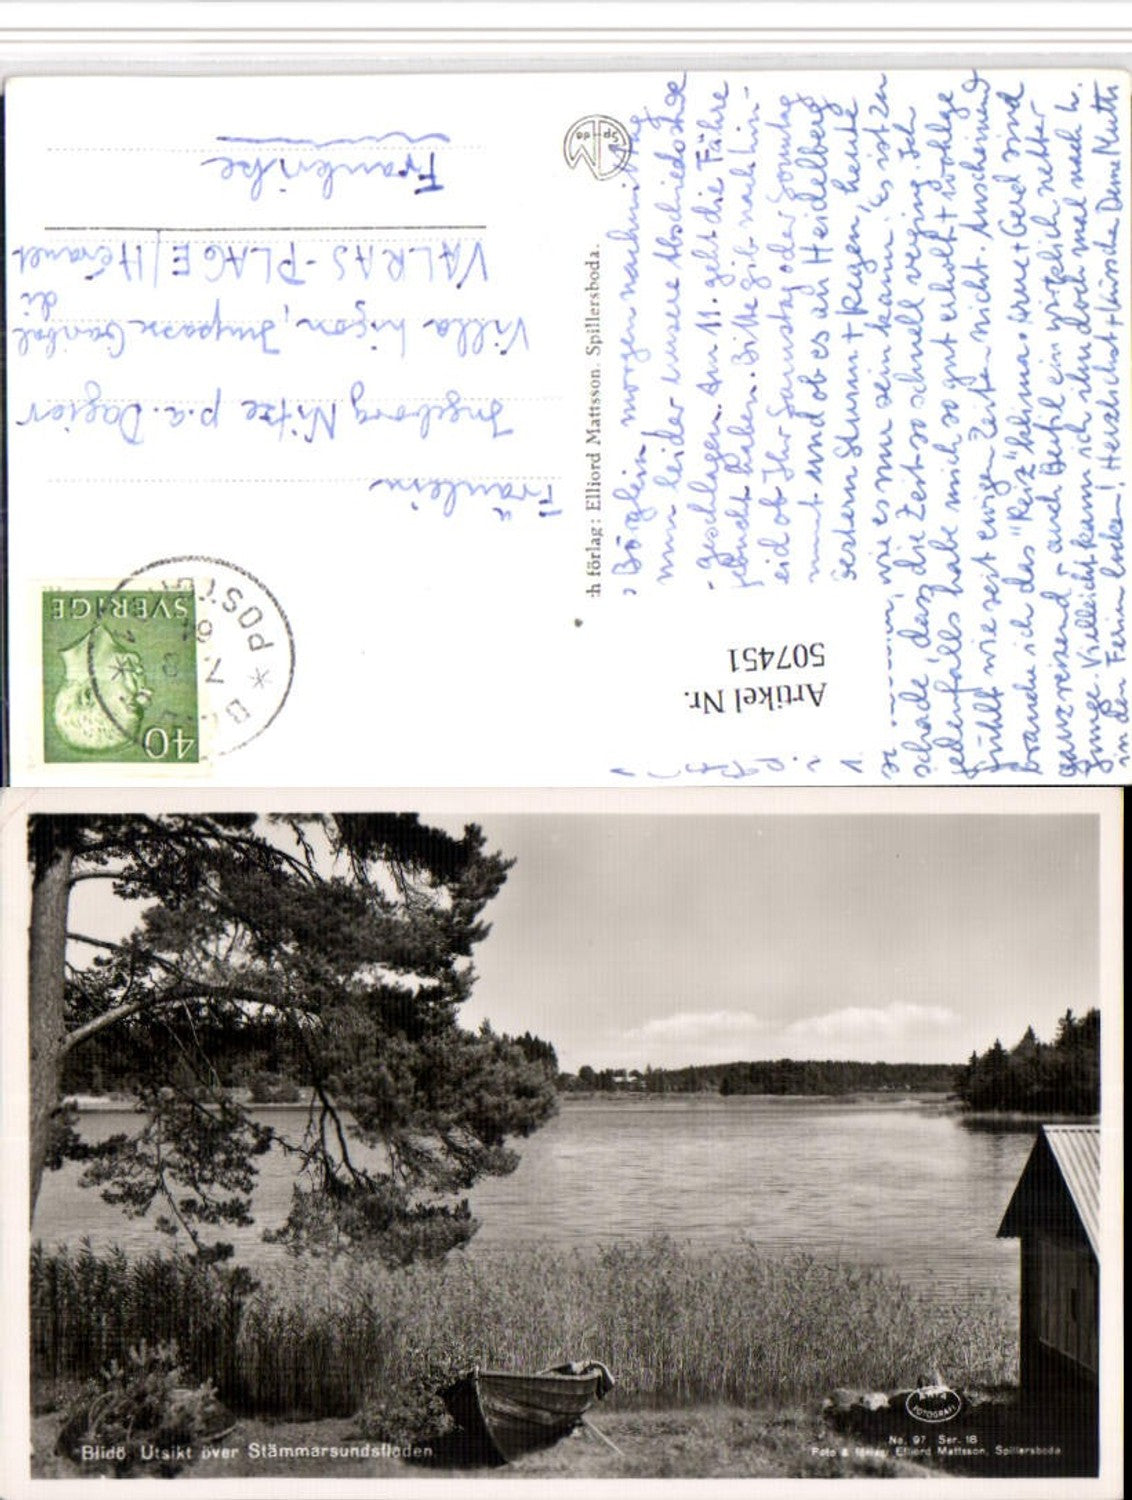 Fräulein
Ingeborg Nitze p.a. Dagier
Villa Ligon, Impasse Cambol
di
VALRAS-PLAGE / Hérault
Frankrike
SVERIGE
40
POST
7. 8
Sp da
:h förlag: Elliord Mattsson. Spillersboda.
Artikel Nr.
507451
morgen nachmittag
nun leider unsere Abschiedsstunde
geschlagen. Am 11. geht die Fähre
gebucht haben. Bitte gib nach hin-
eid ob Ihr Samstag oder Sonntag
mmt und ob es ab Heidelberg
Gestern Sturm + Regen, heute
wie es nur sein kann. Es ist zu
schade, dass die Zeit so schnell verging. Ich
jedenfalls habe mich so gut erholt + wohlge
fühlt wie seit ewigen Zeiten nicht. Anscheinend
brauche ich das "Reiz"klima. Irene + Gerd sind
ganz reizend + auch Detlef ein wirklich netter
Junge. Vielleicht kann ich ihn doch mal nach H.
in den Ferien locken! Herzlichst + Küsschen Deine Mutti
Blidö. Utsikt över Stämmarsundsfladen
FOTOGRAFI
No. 97 Ser. 18
Foto & förlag: Elliord Mattsson, Spillersboda